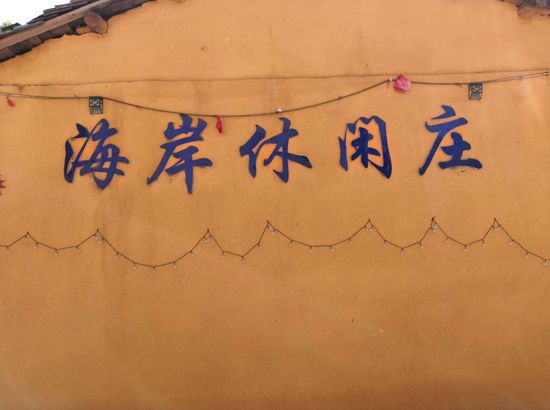 海岸休闲庄